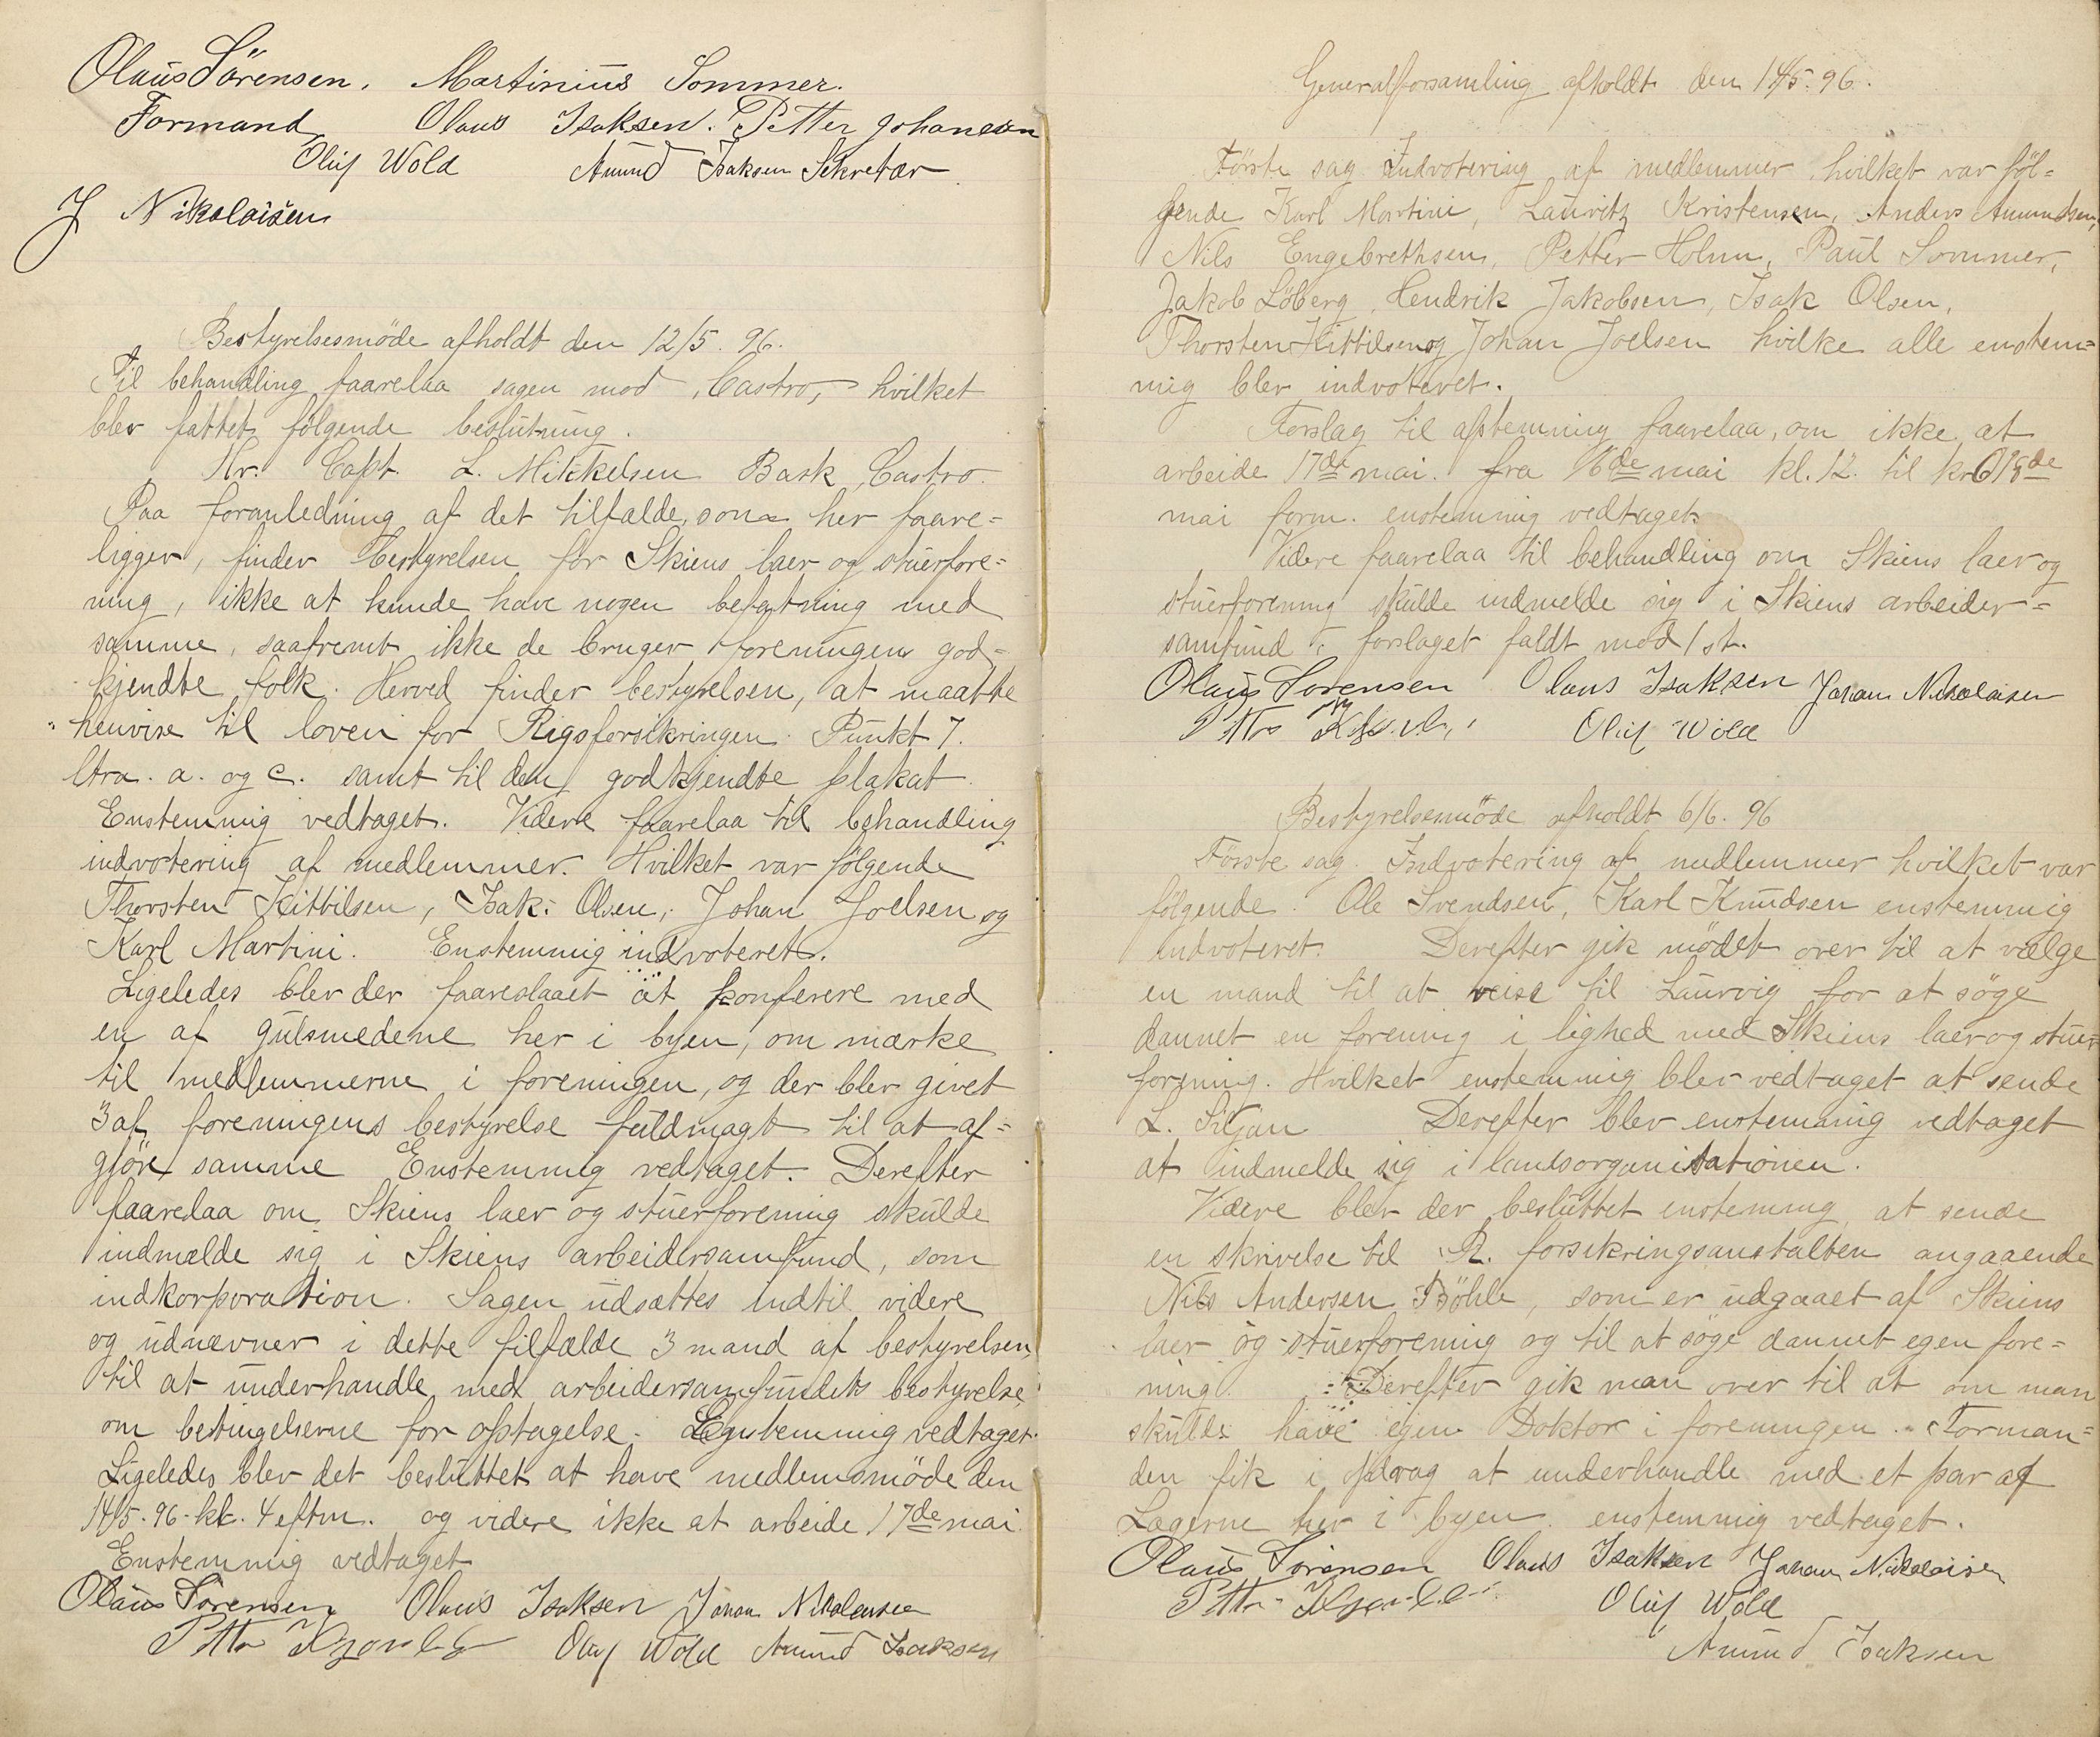 Olaus Sörensen. Martinius Sommer.
Formand Olaus Isaksen. Petter Johansen
Oluf Wold Amund Isaksen Sekretær
J Nikolaisen
Bestyrelsesmöde afholdt den 12/5. 96.
Til behandling faarelaa sagen mod "Castro," hvilket
blev fattet fölgende beslutning.
Hr. Capt. L. Mikkelsen Bark "Castro.
Paa foranledning af det tilfælde, som her faare=
ligger, finder bestyrelsen for Skiens laer og stuerfore=
ning, ikke at kunde have nogen befatning med
samme, saafremt ikke de bruger foreningens god=
kjendte folk. Herved finder bestyrelsen, at maatte
henvise til loven for Rigsforsikringen. Punkt 7.
ltra. a. og c. samt til den godkjendte plakat.
Enstemmig vedtaget. Videre faarelaa til behandling
indvotering af medlemmer. Hvilket var fölgende
Thorsten Kittilsen, Isak. Olsen, Johan Joelsen og
Karl Martini. Enstemmig indvoteret.
Ligeledes blev der faareslaaet at konferere med
en af gulsmedene her i byen, om mærke
til medlemmerne i foreningen, og der blev givet
3 af foreningens bestyrelse fuldmagt til at af=
gjöre samme Enstemmig vedtaget. Derefter
faarelaa om Skiens laer og stuerforening skulde
indmelde sig i Skiens arbeidersamfund, som
indkorporation. Sagen udsættes indtil videre
og udnævner i dette tilfælde 3 mand af bestyrelsen,
til at underhandle med arbeidersamfundets bestyrelse,
om betingelserne for optagelse. Enstemmig vedtaget.
Ligeledes blev det besluttet at have medlemsmöde den
14/5. 96. kl. 4 eftm. og videre ikke at arbeide 17de mai.
Enstemmig vedtaget
Olaus Sörensen Olaus Isaksen Johan Nikolaisen
Oluf Wold Amund Isaksen
Generalforsamling afholdt den 14/5. 96.
Förste sag Indvotering af medlemmer hvilket var föl=
gende Karl Martini, Lauritz Kristensen, Anders Amundsen,
Nils Engebrethsen, Petter Holm, Paul Sommer,
Jakob Löberg, Hendrik Jakobsen, Isak Olsen,
Thorsten Kittilsen og Johan Joelsen hvilke alle enstem=
mig blev indvoteret.
Forslag til afstemning faarelaa, om ikke at
arbeide 17de mai. fra 16de mai kl. 12. til kl 6 18de
mai form. enstemmig vedtaget
Videre faarelaa til behandling om Skiens laer og
stuerforening skulde indmelde sig i Skiens arbeider=
samfund, forslaget faldt mod 1 st.
Olaus Sorensen Olaus Isaksen Johan Nikolaisen
Oluf Wold
Bestyrelsesmöde afholdt 6/6. 96
Förste sag. Indvotering af medlemmer hvilket var
fölgende. Ole Svendsen, Karl Knudsen enstemmig
indvoteret. Derefter gik mödet over til at vælge
en mand til at reise til Laurvig for at söge
dannet en forening i lighed med Skiens laer og stuer
forening. Hvilket enstemmig blev vedtaget at sende
L. Siljan Derefter blev enstemmig vedtaget
at indmelde sig i landsorganisationen.
Videre blev der besluttet enstemmig, at sende
en skrivelse til R. forsikringsanstalten angaaende
Nils Andersen Böhle, som er udgaaet af Skiens
laer og stuerforening og til at söge dannet egen fore=
ning. Derefter gik man over til at om man
skulde have egen Doktor i foreningen. Forman=
den fik i opdrag at underhandle med et par af
Lægerne her i byen. enstemmig vedtaget.
Olaus Sörensen Olaus Isaksen Johan Nikolaisen
Oluf Wold
Amund Isaksen